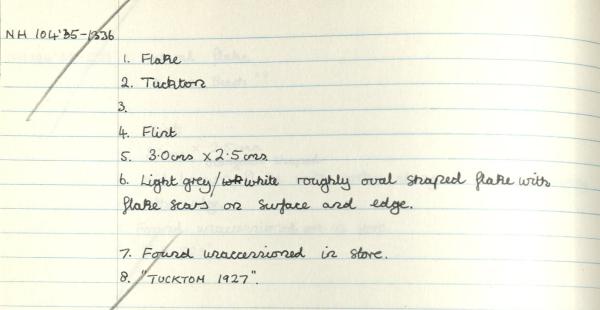 NH 104'35-1336
1. Flake
2. Tuckton
3.
4. Flint
5. 3.0cms x 2.5cms
6. Light grey/white roughly oval shaped flake with
flake scars on surface and edge.
7. Found unaccessioned in store.
8. "TUCKTON 1927".